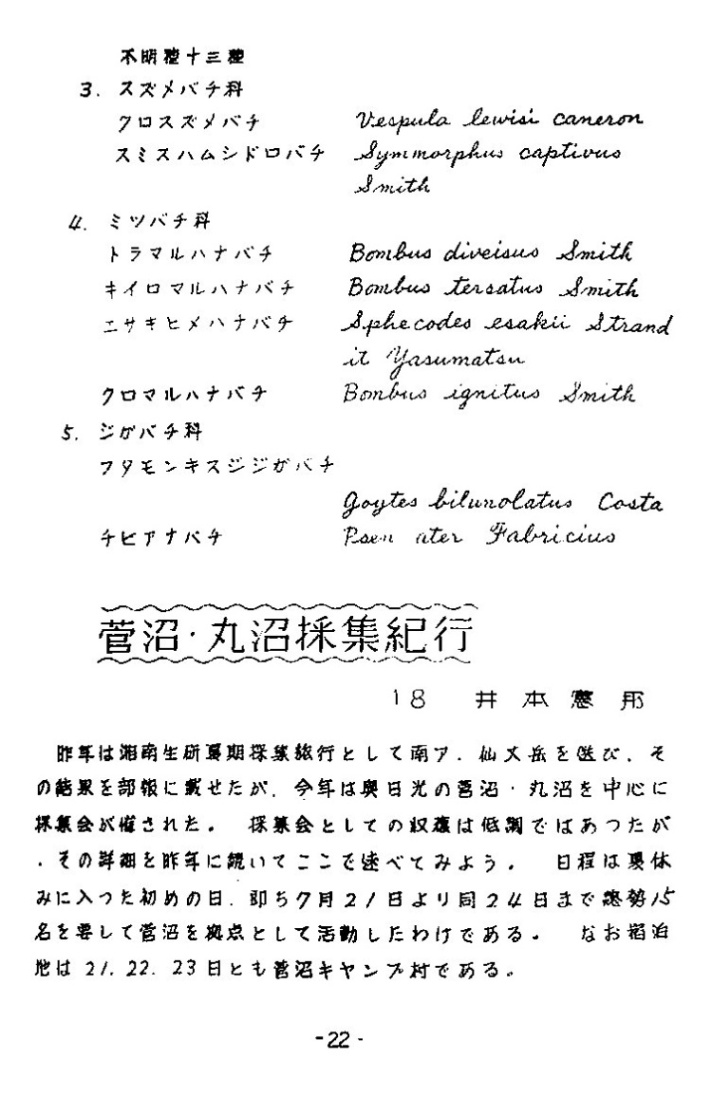 不明種十三種
3. スズメバチ科
クロスズメバチ Vespula lewisi caneron
スミスハムシドロバチ Symmorphus captivus
Smith
4. ミツバチ科
トラマルハナバチ Bombus diveisus Smith
キイロマルハナバチ Bombus tersatus Smith
エサキヒメハナバチ Sphecodes esakii Strand
it Yasumatsu
クロマルハナバチ Bombus ignitus Smith
5. ジガバチ科
フタモンキスジジガバチ
Goytes bilunolatus Costa
チビアナバチ Psen ater Fabricius
菅沼・丸沼採集紀行
18 井本憲邦
昨年は湘南生研夏期採集旅行として南ア.仙丈岳を選び、そ
の結果を部報に載せたが、今年は奥日光の菅沼・丸沼を中心に
採集会が催された。 採集会としての収穫は低調ではあつたが
、その詳細を昨年に続いてここで述べてみよう。 日程は夏休
みに入つた初めの日、即ち7月21日より同24日まで総勢15
名を要して菅沼を拠点として活動したわけである。 なお宿泊
地は 21. 22. 23日とも菅沼キヤンプ村である。
-22-